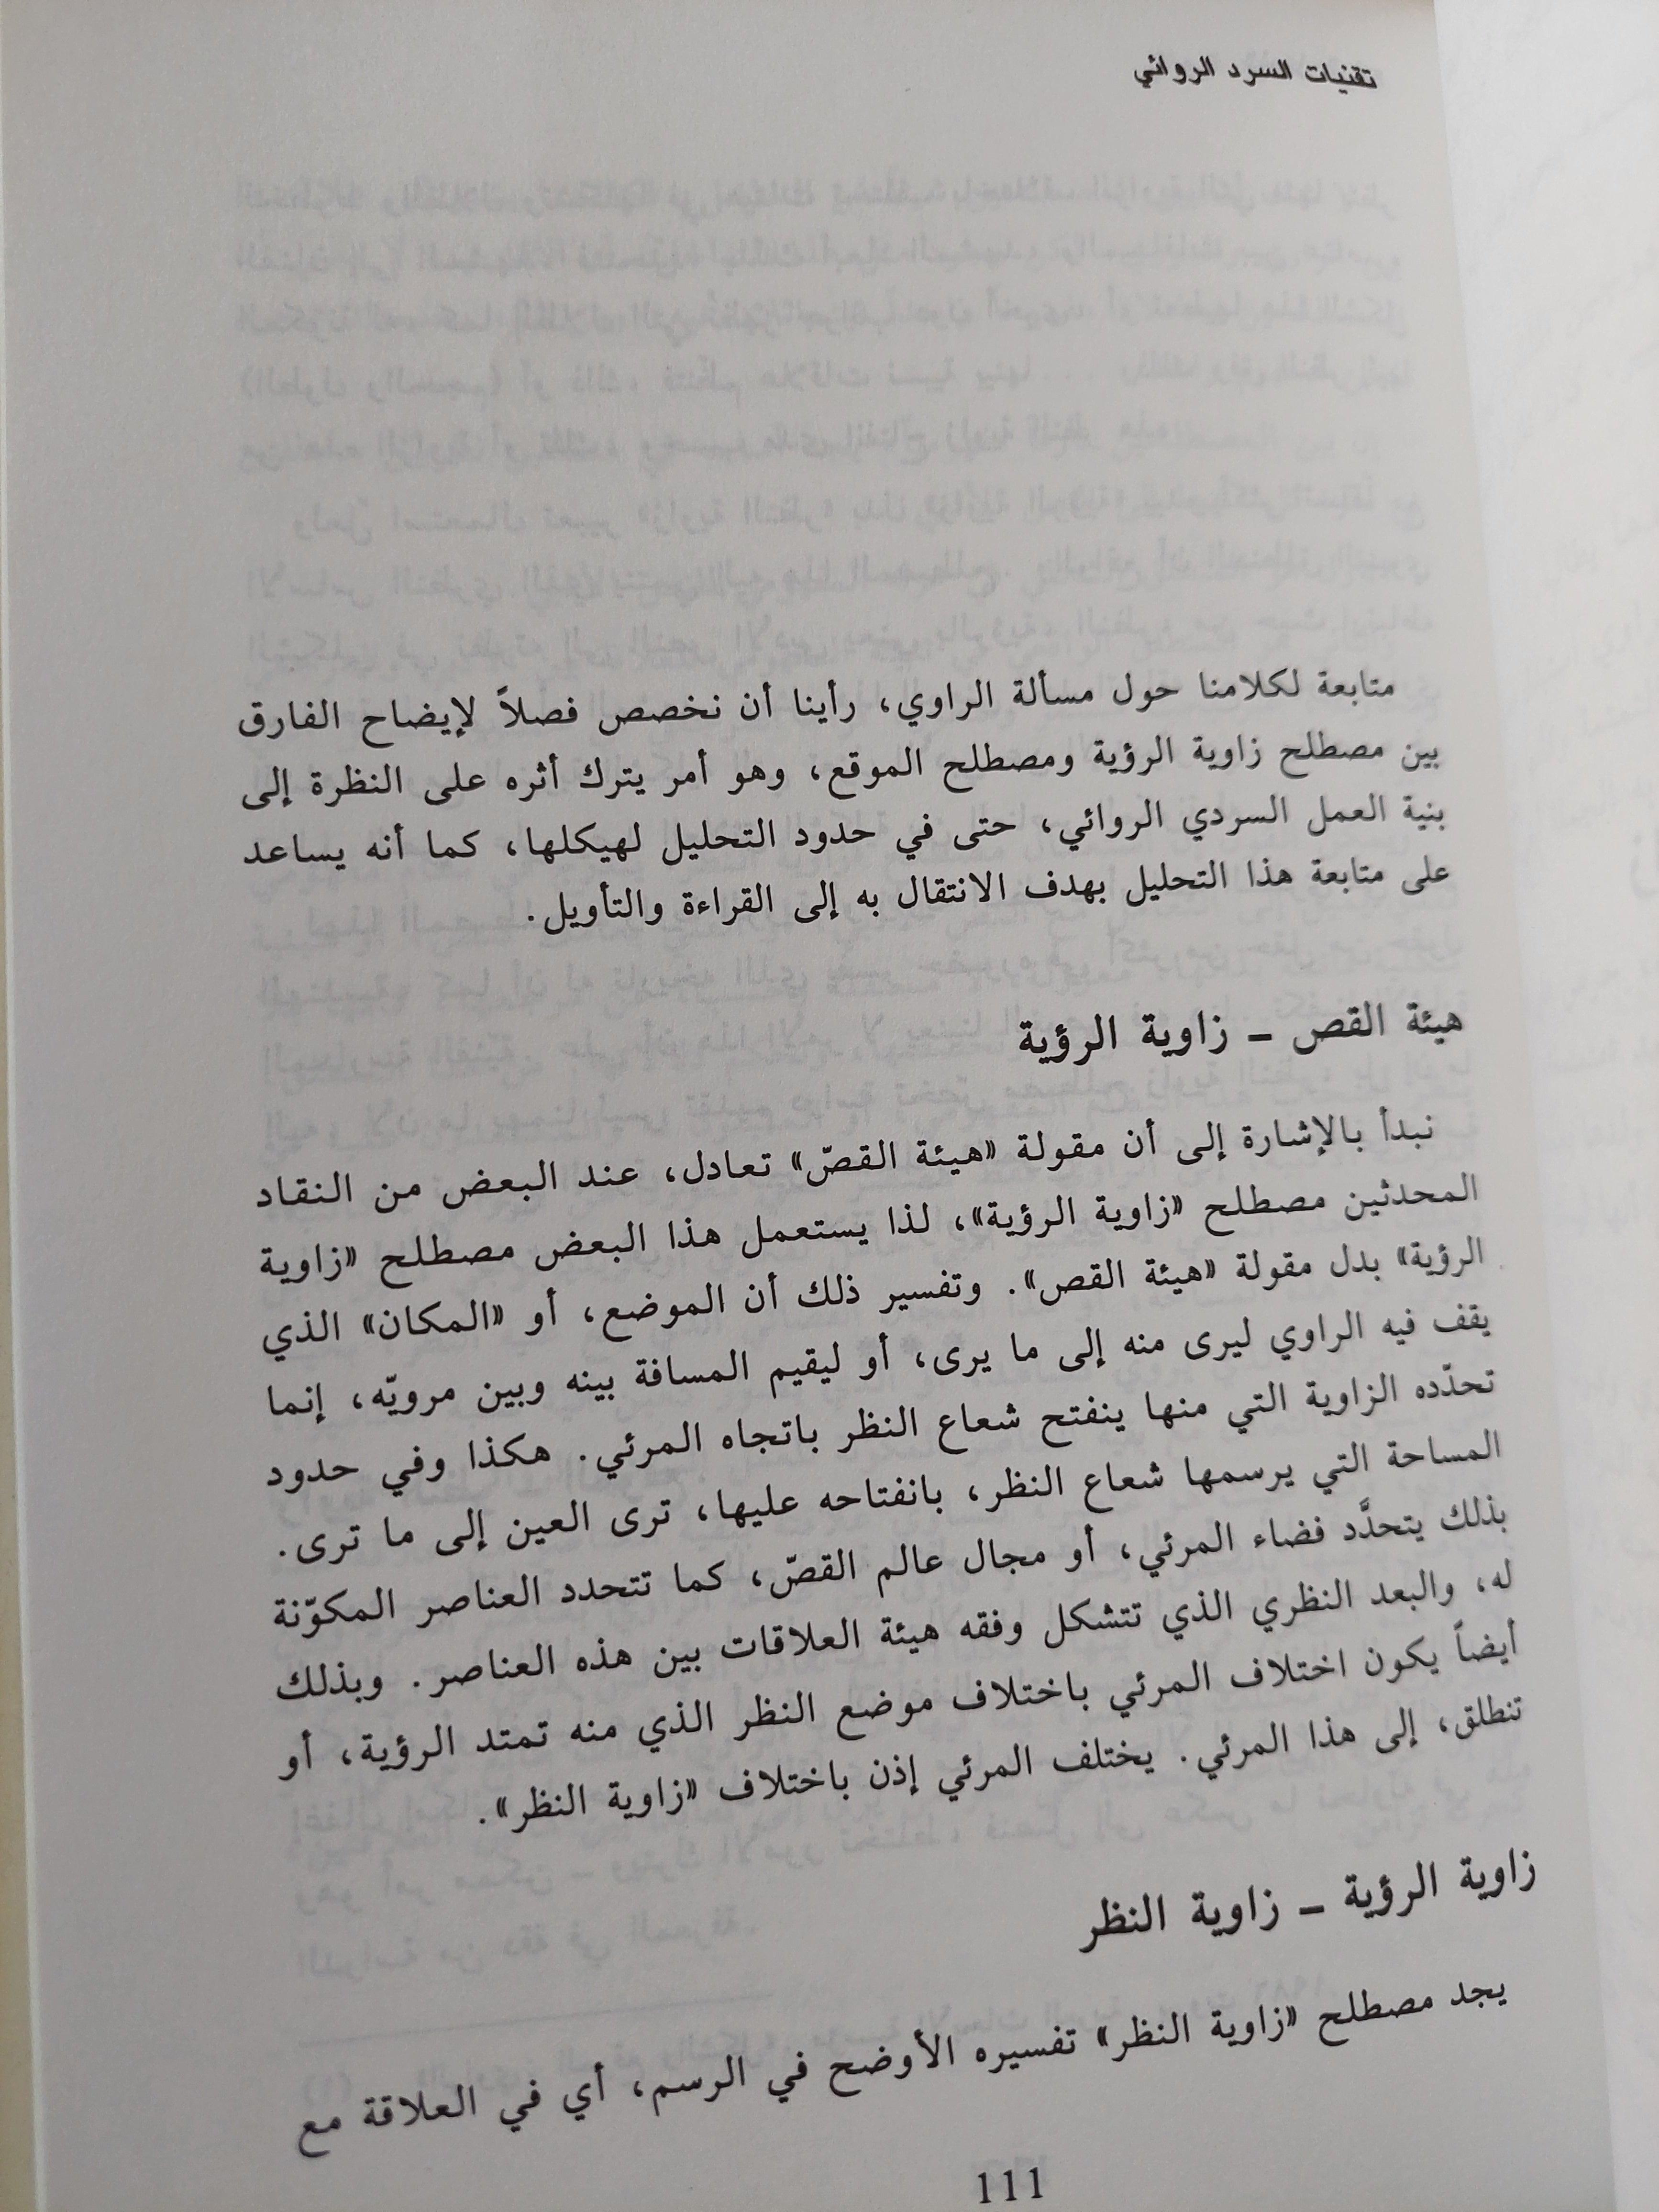 تقنيات السرد الروائي
متابعة لكلامنا حول مسألة الراوي، رأينا أن نخصص فصلاً لإيضاح الفارق
بين مصطلح زاوية الرؤية ومصطلح الموقع، وهو أمر يترك أثره على النظرة إلى
بنية العمل السردي الروائي، حتى في حدود التحليل لهيكلها، كما أنه يساعد
على متابعة هذا التحليل بهدف الانتقال به إلى القراءة والتأويل.
هيئة القص – زاوية الرؤية
نبدأ بالإشارة إلى أن مقولة «هيئة القصّ» تعادل، عند البعض من النقاد
المحدثين مصطلح «زاوية الرؤية»، لذا يستعمل هذا البعض مصطلح «زاوية
الرؤية» بدل مقولة «هيئة القص». وتفسير ذلك أن الموضع، أو «المكان» الذي
يقف فيه الراوي ليرى منه إلى ما يرى، أو ليقيم المسافة بينه وبين مرويّه، إنما
تحدّده الزاوية التي منها ينفتح شعاع النظر باتجاه المرئي. هكذا وفي حدود
المساحة التي يرسمها شعاع النظر، بانفتاحه عليها، ترى العين إلى ما ترى.
بذلك يتحدَّد فضاء المرئي، أو مجال عالم القصّ، كما تتحدد العناصر المكوّنة
له، والبعد النظري الذي تتشكل وفقه هيئة العلاقات بين هذه العناصر. وبذلك
أيضاً يكون اختلاف المرئي باختلاف موضع النظر الذي منه تمتد الرؤية، أو
تنطلق، إلى هذا المرئي. يختلف المرئي إذن باختلاف «زاوية النظر».
زاوية الرؤية – زاوية النظر
يجد مصطلح «زاوية النظر» تفسيره الأوضح في الرسم، أي في العلاقة مع
111